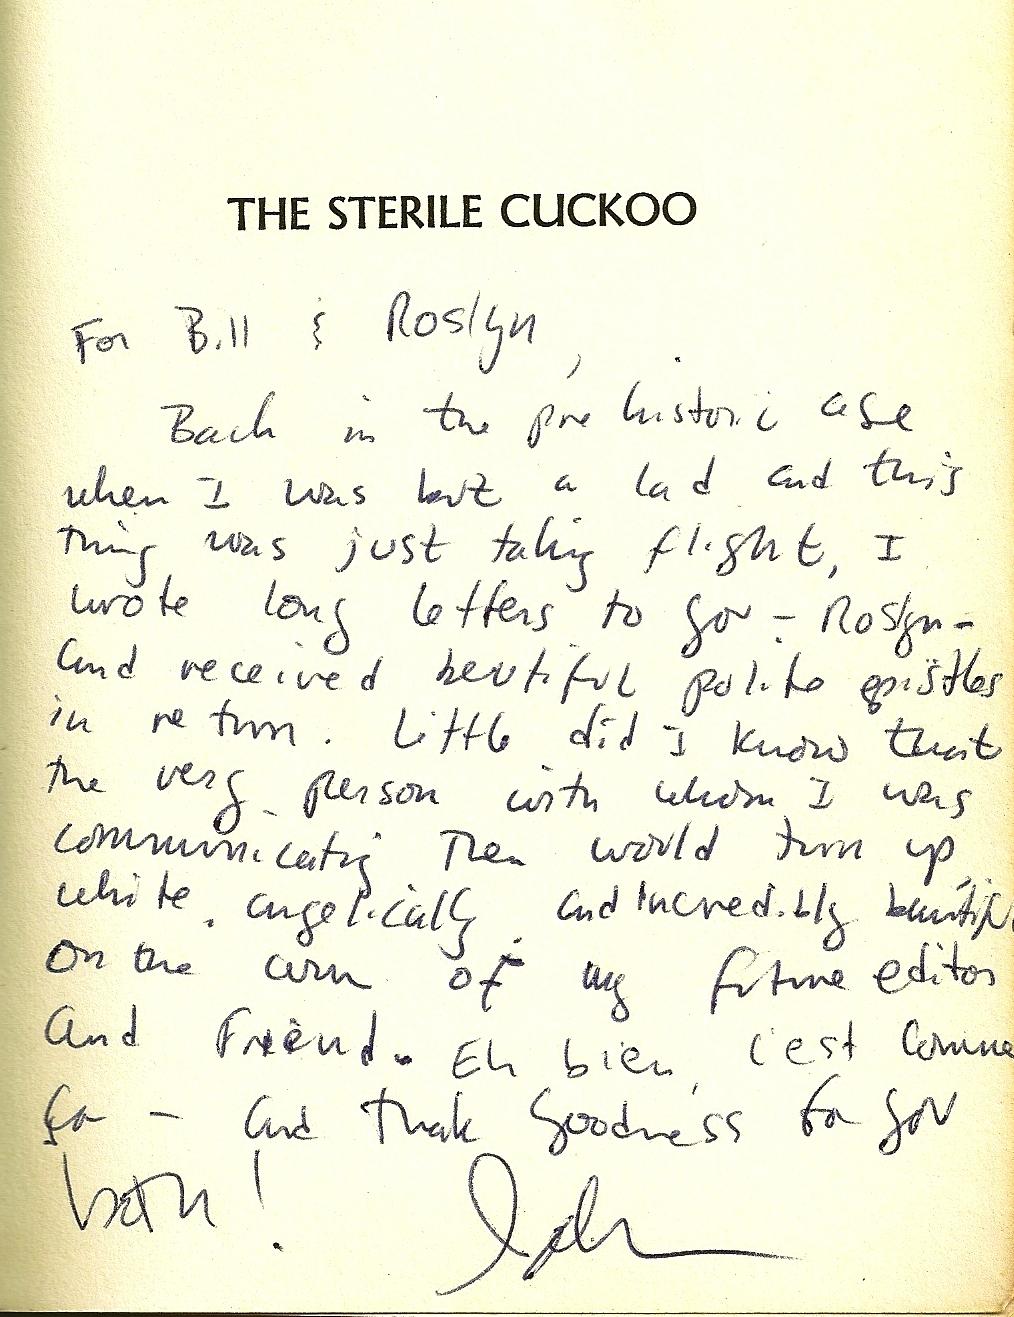 THE STERILE CUCKOO
For Bill & Roslyn,
Back in the prehistoric age
when I was but a lad and this
thing was just taking flight, I
wrote long letters to you - Roslyn -
and received beutiful polite epistles
in return. Little did I know that
the very person with whom I was
communicating then would turn up,
white, angelically, and incredibly beautiful
on the arm of my future editor
and friend. Eh bien, c'est comme
ça - and thank goodness for you
both!
John